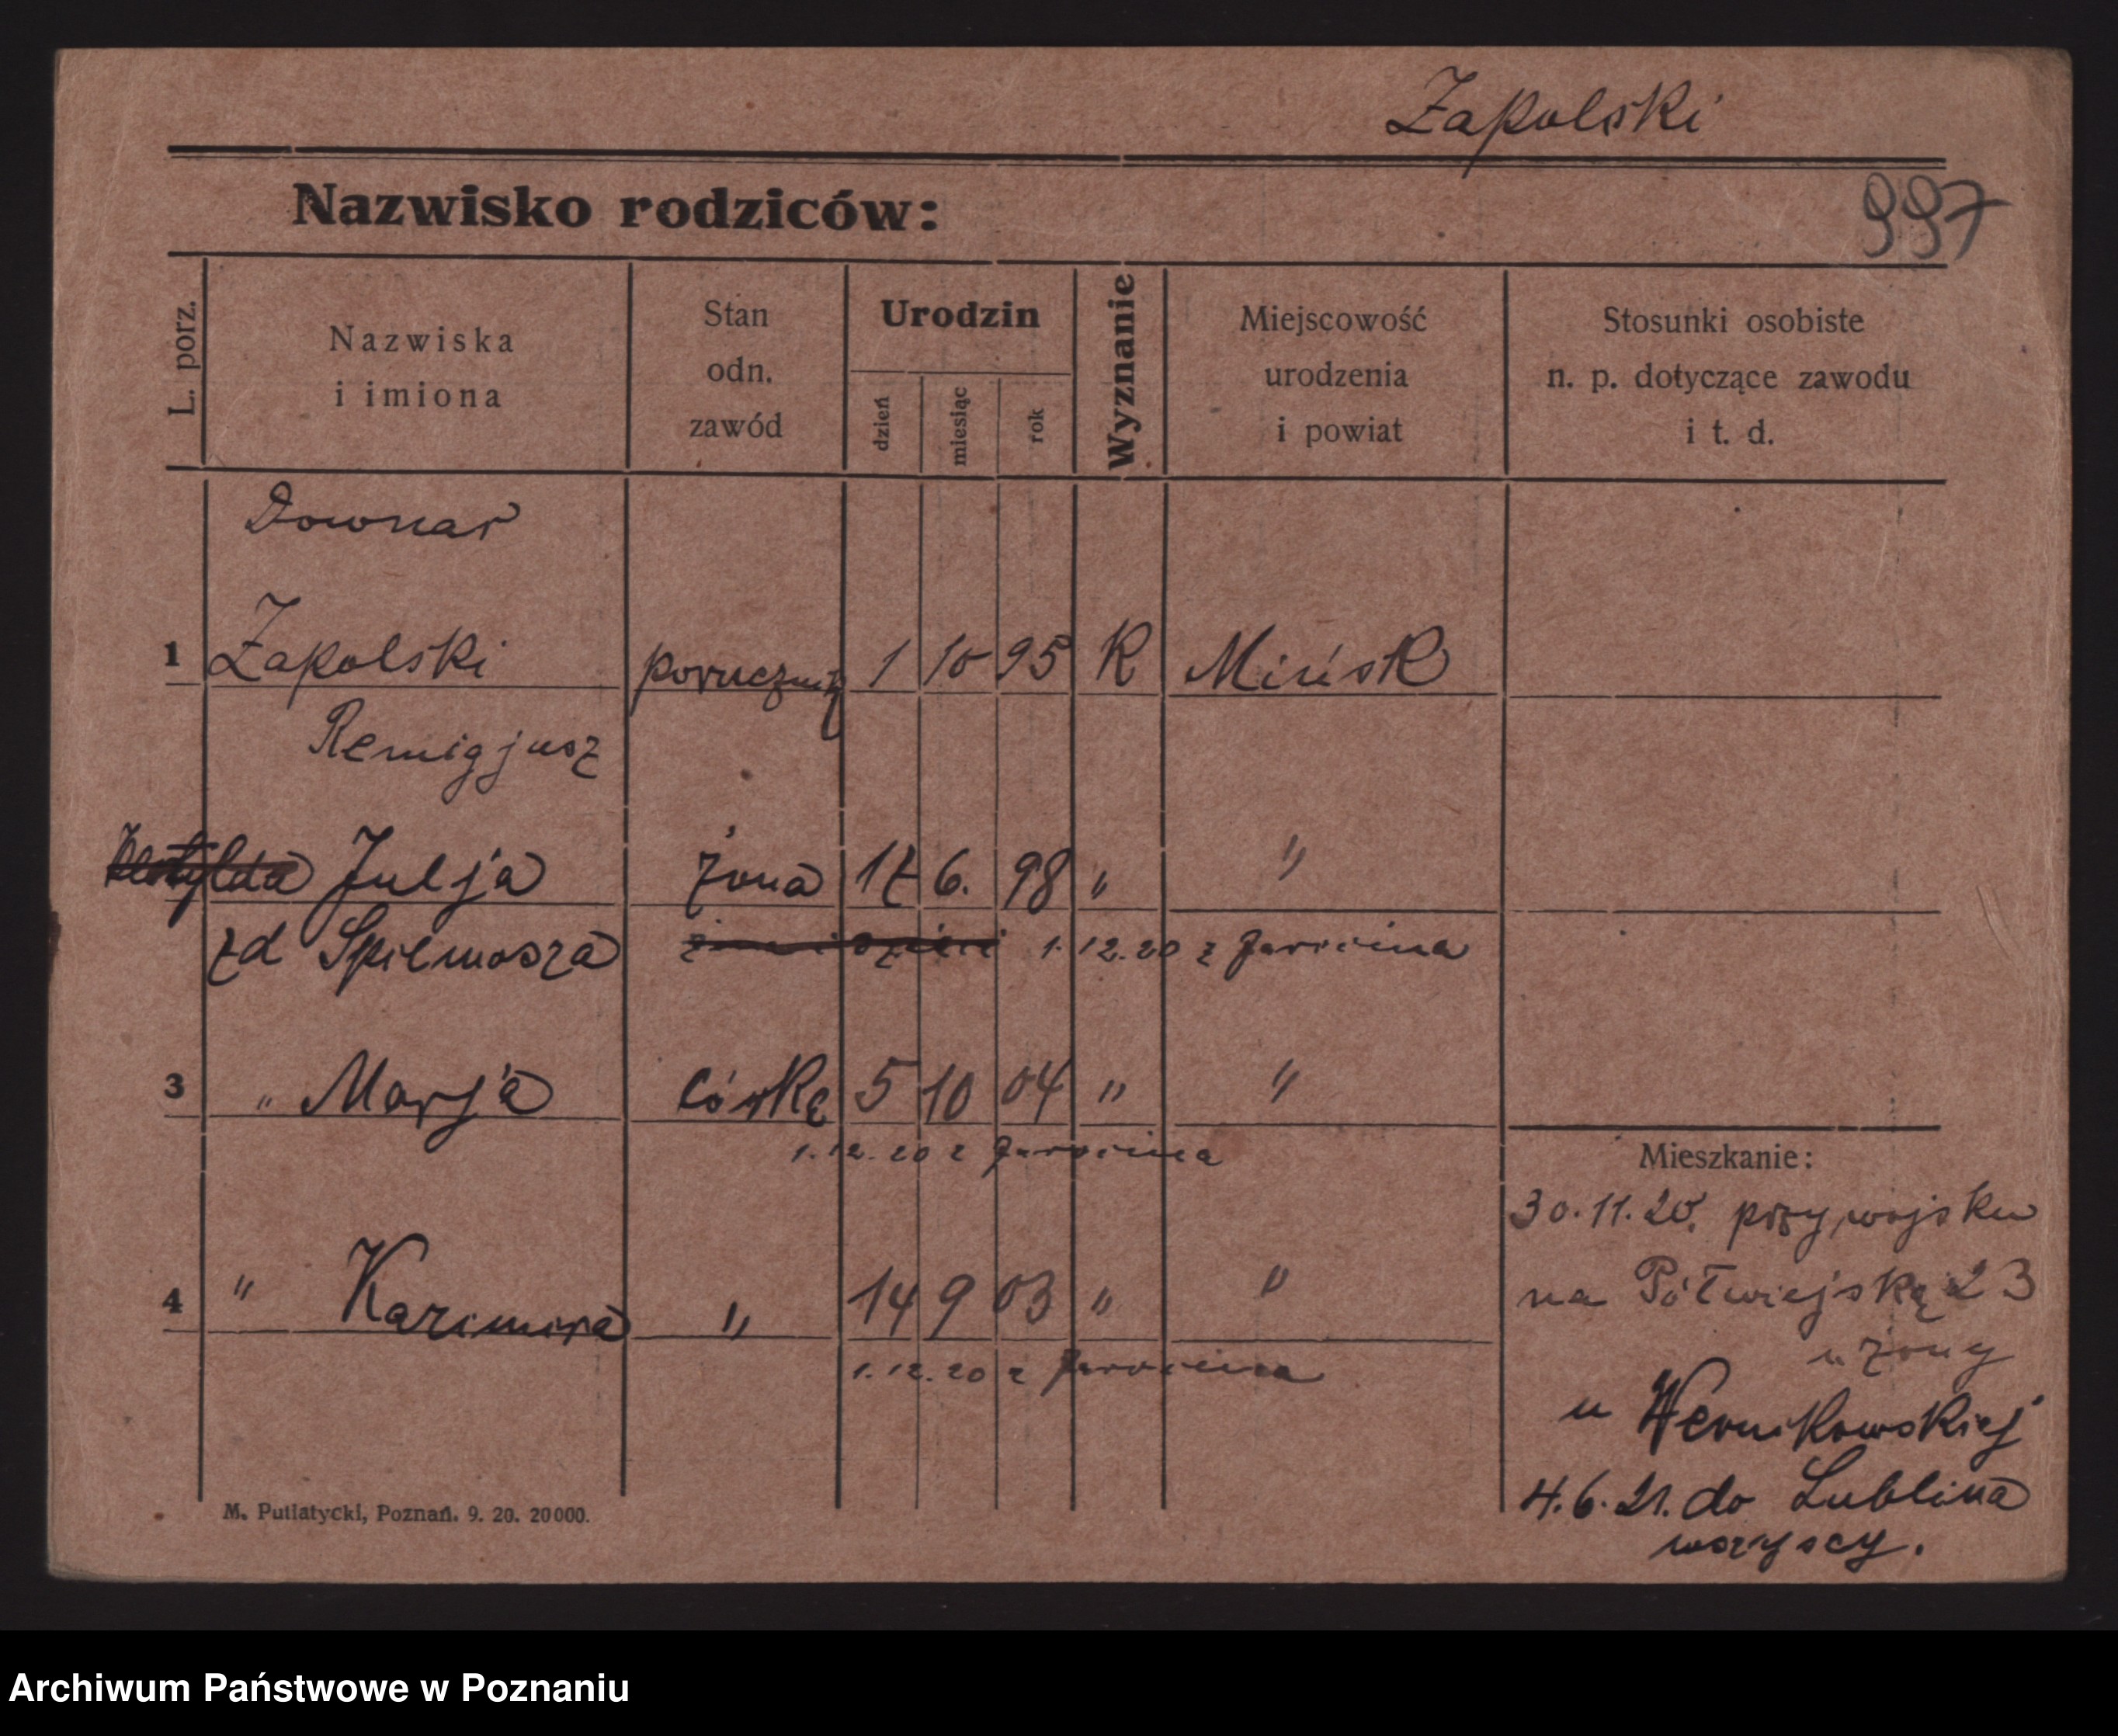 Zapolski
Nazwisko rodziców:
997
L. porz.
Nazwiska
i imiona
Stan
odn.
zawód
Urodzin
dzień
miesiąc
rok
Wyznanie
Miejscowość
urodzenia
i powiat
Stosunki osobiste
n. p. dotyczące zawodu
i t. d.
Downar
1 Zapolski porucznik 1 10 95 R Mińsk
Remigjusz
Julja żona 17 6. 98 " "
zd 1.12.20 z Jarocina
3 " Marja córka 5 10 04 " "
1.12.20 z Jarocina
4 " Kazimira " 14 9 03 " "
1.12.20 z Jarocina
Mieszkanie:
30.11.20. przy wojsku
na Półwiejską 23
u żony
u Wernikowskiej
4.6.21. do Lublina
wszyscy.
M. Putiatycki, Poznań. 9. 20. 20000.
Archiwum Państwowe w Poznaniu